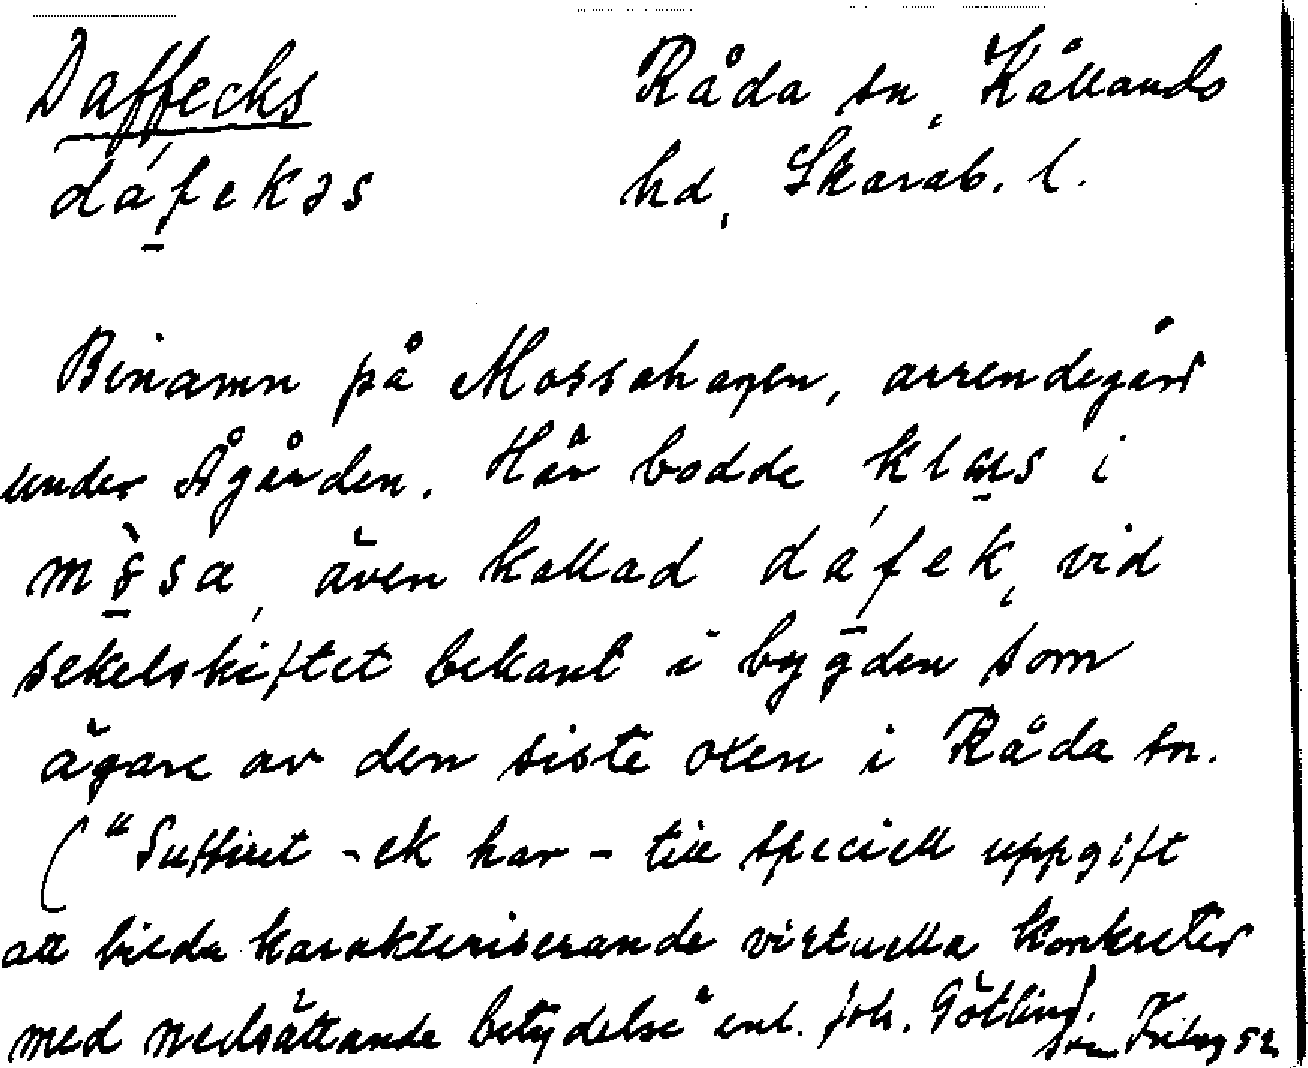 Daffecks Råda sn, Kållands
dáfekəs hd, Skarab. l.
Binamn på Mossahagen, arrendegård
under Ågården. Här bodde klas i
även kallad dáfek, vid
sekelskiftet bekant i bygden som
ägare av den siste oxen i Råda sn.
("Suffixet -ek har - till speciell uppgift
att bilda karakteriserande virtuella konkreter
med nedsättande betydelse" enl. Joh. Götlind).